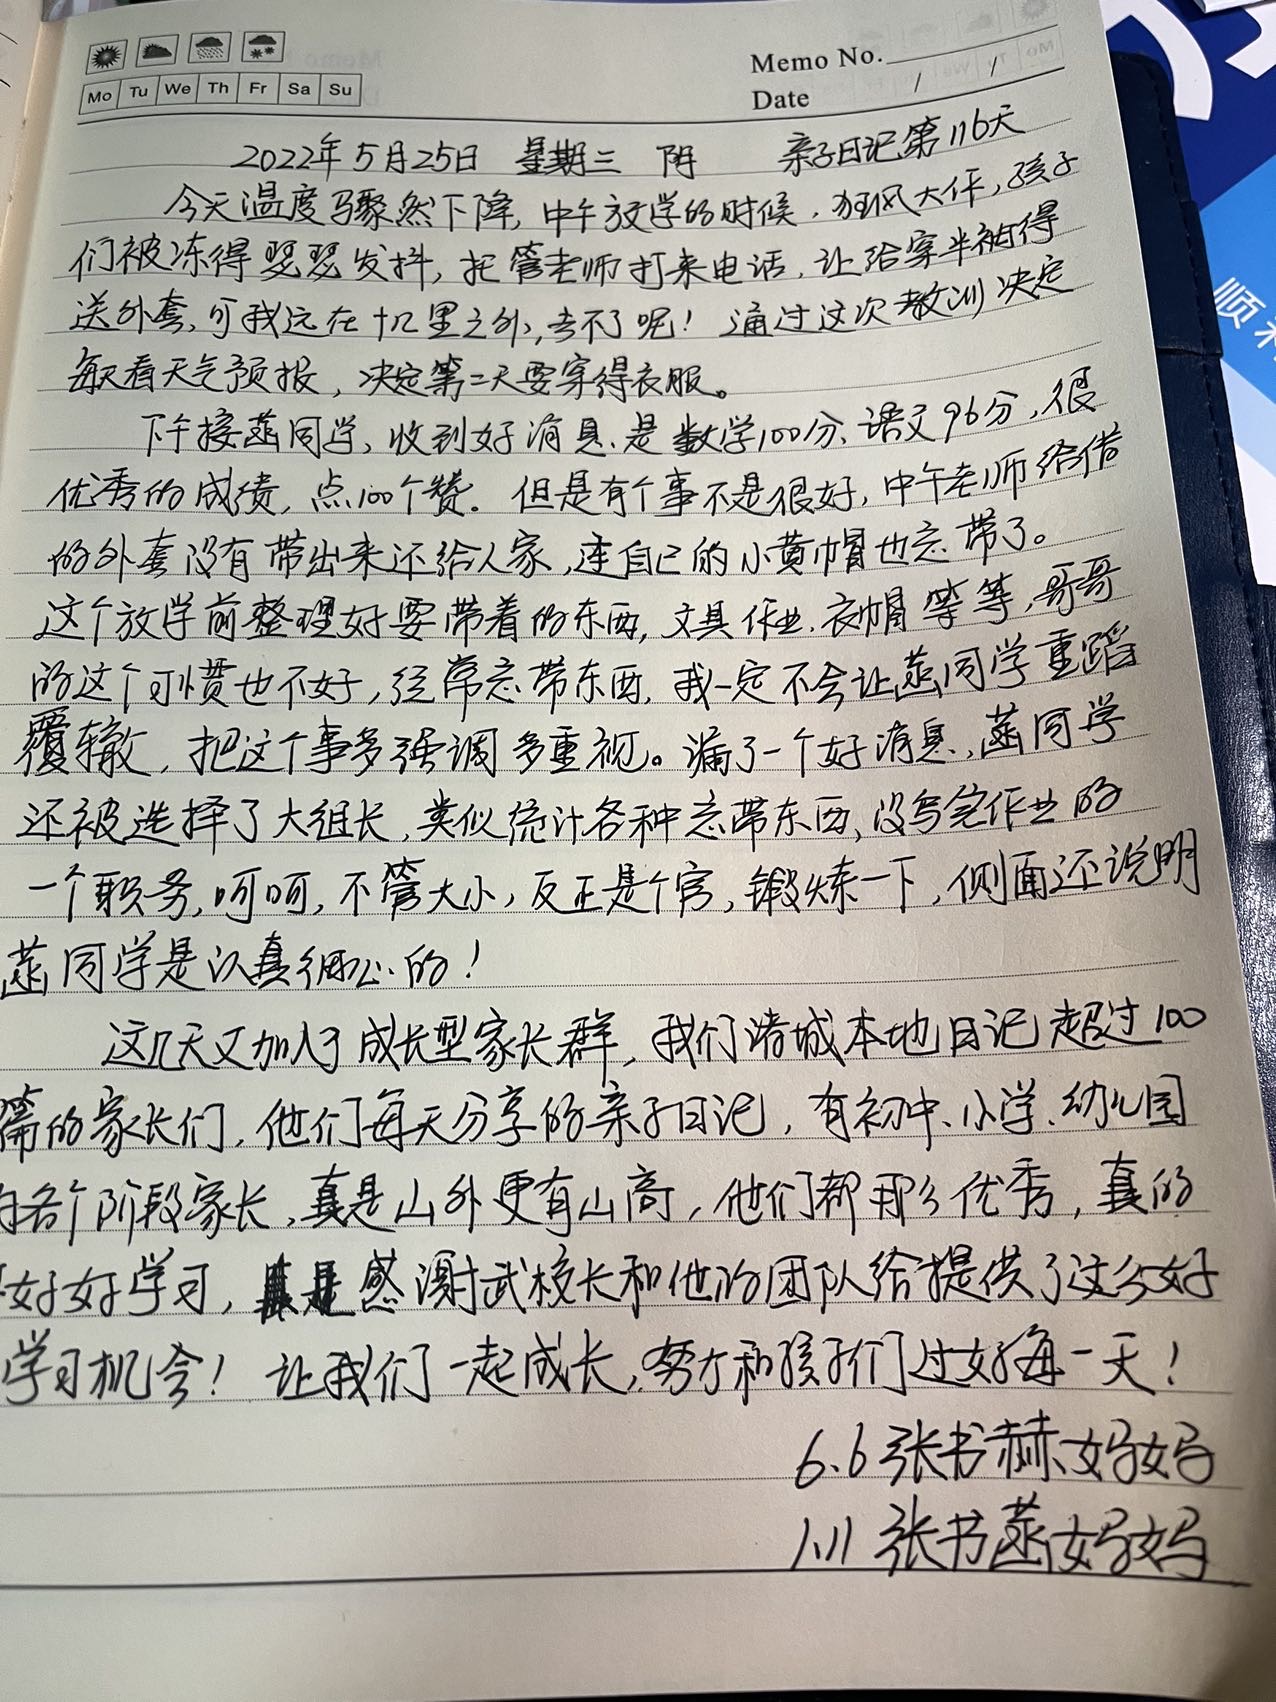 Memo No.
Mo Tu We Th Fr Sa Su
Date / /
2022年5月25日 星期三 阴 亲子日记第116天
今天温度骤然下降,中午放学的时候,狂风大作,孩子
们被冻得瑟瑟发抖,托管老师打来电话,让给穿半袖得
送外套,可我远在十几里之外,去不了呢!通过这次教训决定
每天看天气预报,决定第二天要穿得衣服。
下午接菡同学,收到好消息,是数学100分、语文96分,很
优秀的成绩,点100个赞.但是有个事不是很好,中午老师给借
的外套没有带出来还给人家,连自己的小黄帽也忘带了。
这个放学前整理好要带着的东西,文具、作业、衣帽等等,哥哥
的这个习惯也不好,经常忘带东西,我一定不会让菡同学重蹈
覆辙,把这个事多强调多重视。漏了一个好消息,菡同学
还被选择了大组长,类似统计各种忘带东西,没写完作业的
一个职务,呵呵,不管大小,反正是个官,锻炼一下,侧面还说明
菡同学是认真细心的!
这几天又加入了成长型家长群,我们诸城本地日记超过100
篇的家长们,他们每天分享的亲子日记,有初中、小学、幼儿园
各个阶段家长,真是山外更有山高,他们都那么优秀,真的
好好学习,真是感谢武校长和他的团队给提供了这么好
学习机会!让我们一起成长,努力和孩子们过好每一天!
6.6张书赫妈妈
1.11张书菡妈妈
顺利